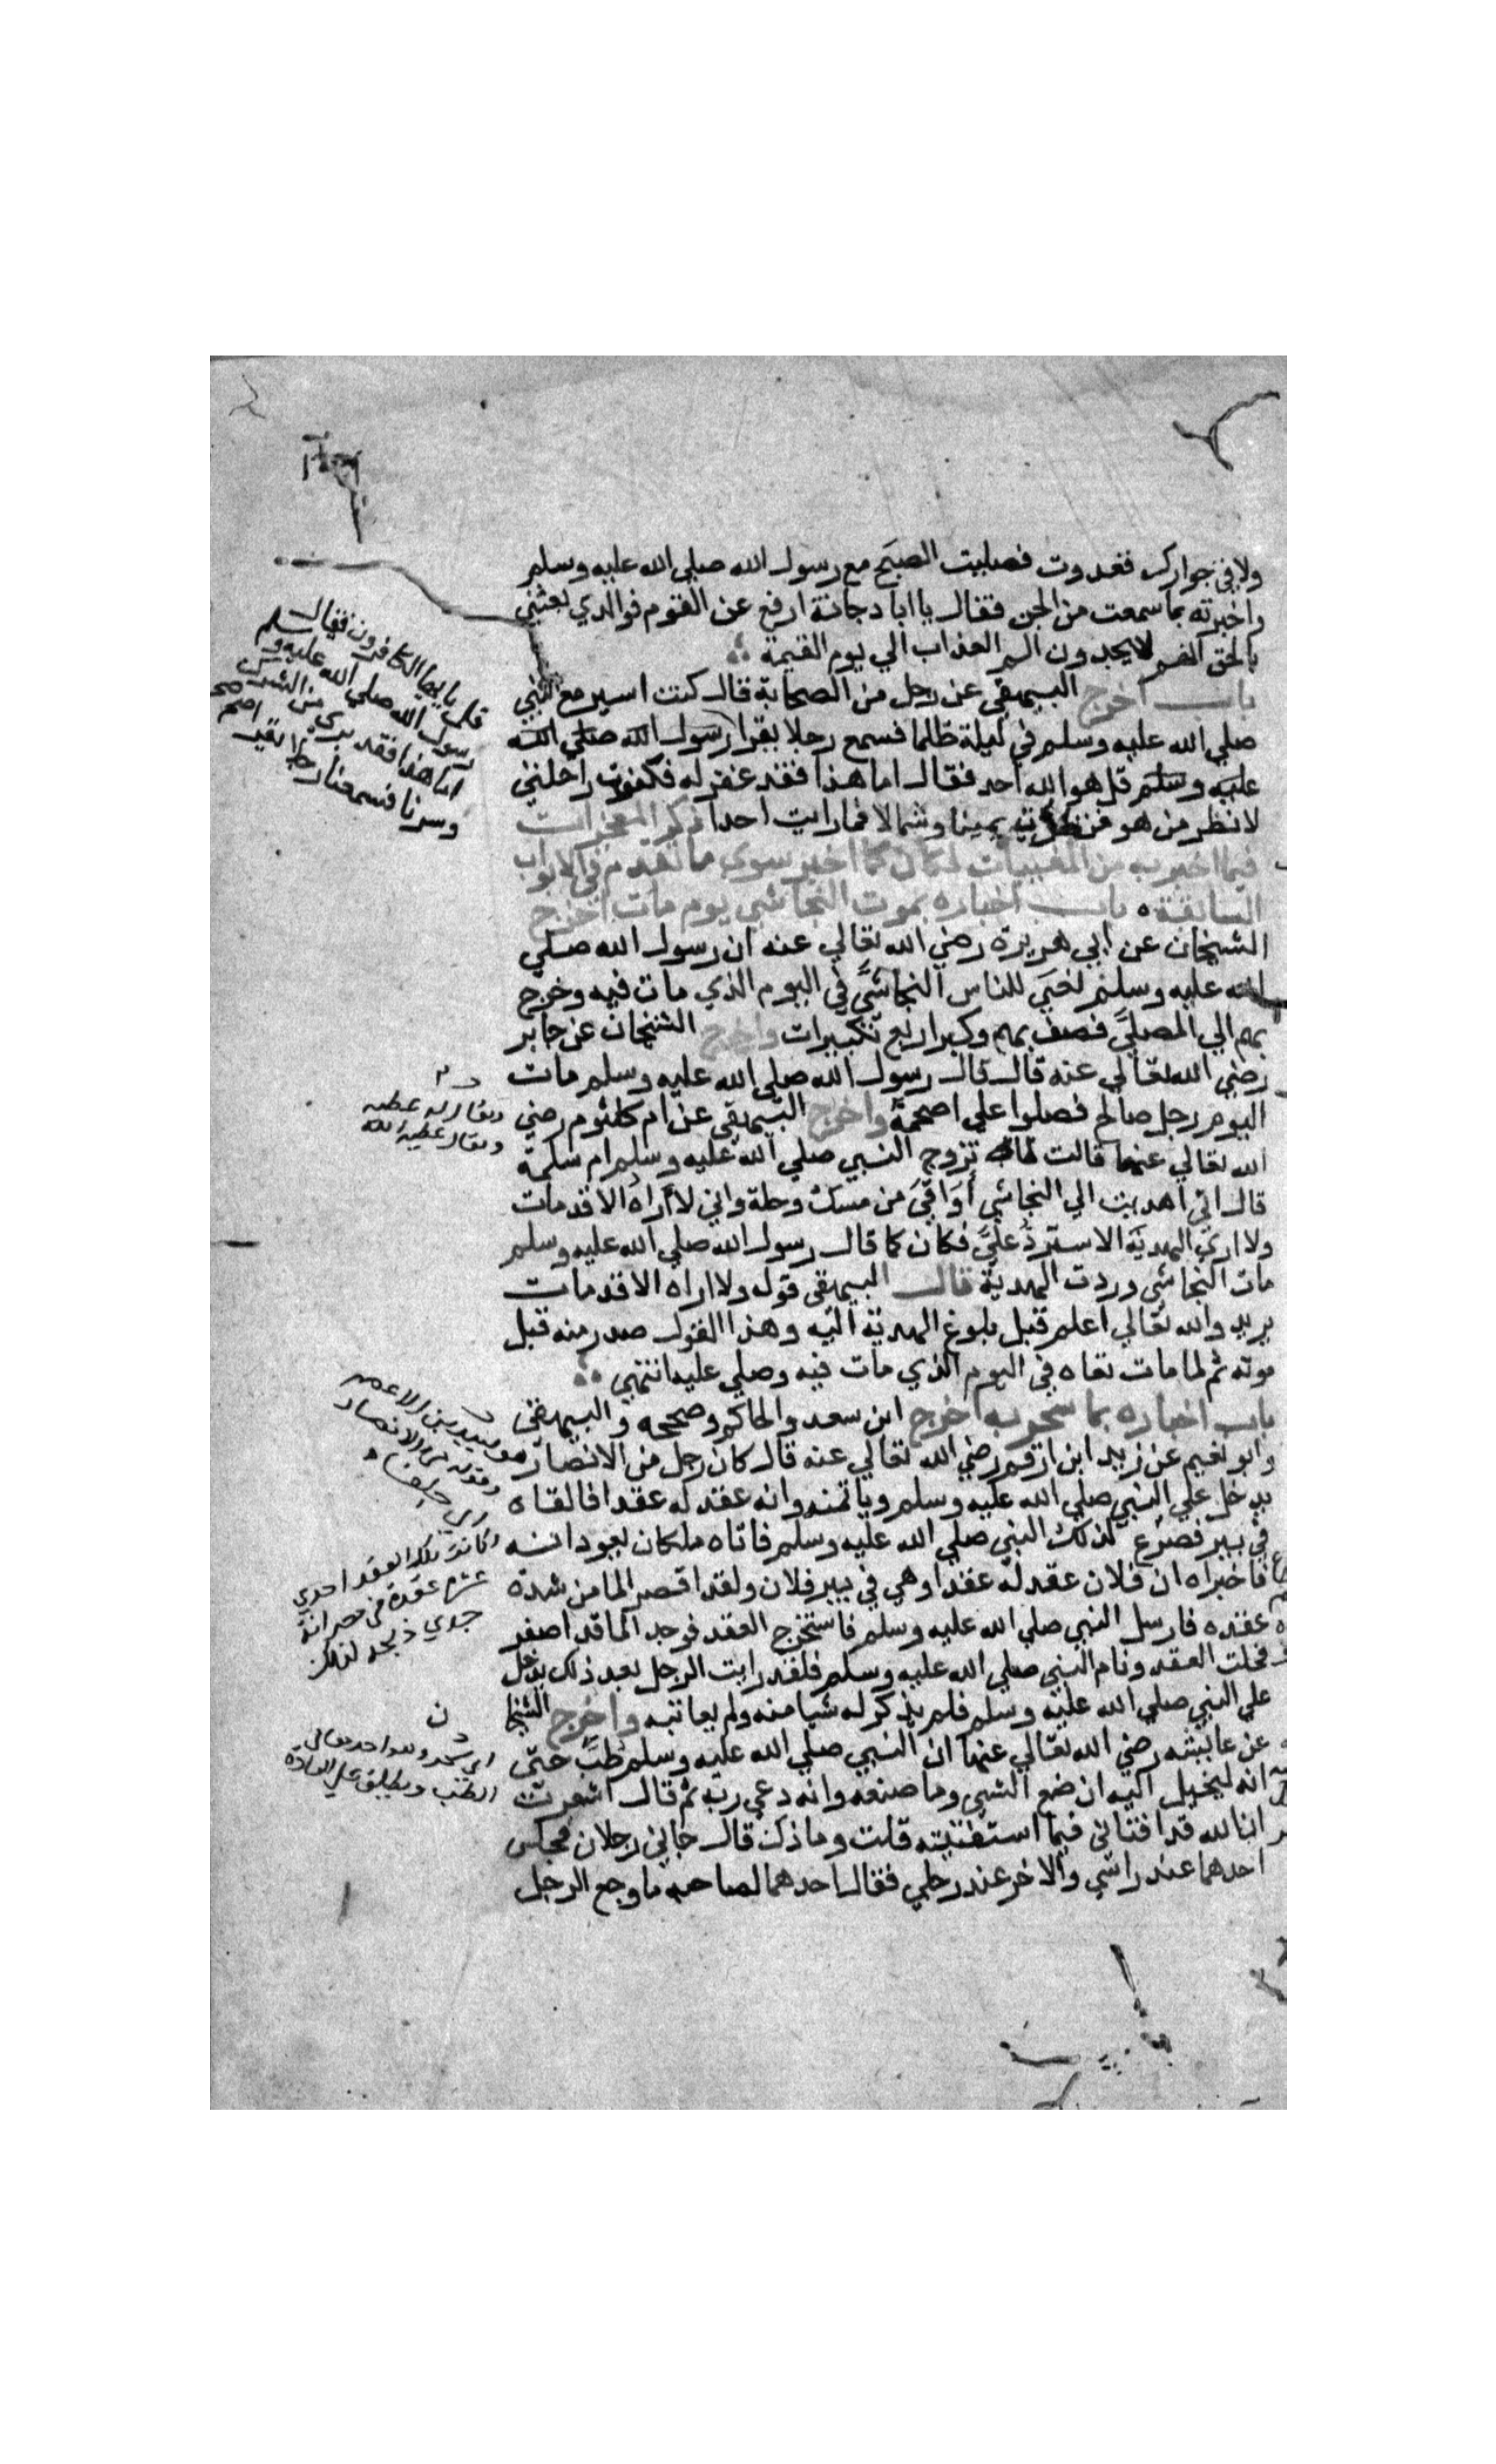 ولا في جوارك فغدوت فصليت الصبح مع رسول الله صلي الله عليه وسلم
واخبرته بما سمعت من الجن فقال يا ابا دجانة ارفع عن القوم فوالذي بعثني
بالحق انهم لايجدون الم العذاب الي يوم القيمة
باب اخرج البيهقي عن رجل من الصحابة قال كنت اسير مع النبي
صلي الله عليه وسلم في ليلة ظلما فسمع رجلا يقرا رسول الله صلي الله
عليه وسلم قل هو الله احد فقال اما هذا فقد غفر له فكففت راحلتي
لانظر من هو فنظرت يمينا وشمالا فما رايت احدا ذكر المعجزات
فيما اخبر به من المغيبات فكان كما اخبر سوي ما تقدم في الابواب
السابقة باب اخباره بموت النجاشي يوم مات اخرج
الشيخان عن ابي هريرة رضي الله تعالي عنه ان رسول الله صلي
الله عليه وسلم نعي للناس النجاشي في اليوم الذي مات فيه وخرج
بهم الي المصلي فصف بهم وكبر اربع تكبيرات واخرج الشيخان عن جابر
رضي الله تعالي عنه قال قال رسول الله صلي الله عليه وسلم مات
اليوم رجل صالح فصلوا علي اصحمة واخرج البيهقي عن ام كلثوم رضي
الله تعالي عنها قالت لما تزوج النبي صلي الله عليه وسلم ام سلمة
قال اني اهديت الي النجاشي أواقي من مسك وحلة واني لا أراه الا قد مات
ولا اري الهدية الا سترد علي فكان كما قال رسول الله صلي الله عليه وسلم
مات النجاشي وردت الهدية قال البيهقي قوله ولا اراه الا قد مات
يريد والله تعالي اعلم قبل بلوغ الهدية اليه وهذا القول صدر منه قبل
موته ثم لما مات نعاه في اليوم الذي مات فيه وصلي عليه انتهي
باب اخباره بما سحر به اخرج ابن سعد والحاكم وصححه والبيهقي
وابو نعيم عن زيد ابن ارقم رضي الله تعالي عنه قال كان رجل من الانصار
يدخل علي النبي صلي الله عليه وسلم وياتمنه وانه عقد له عقدا فالقاه
في بير فصرع لذلك النبي صلي الله عليه وسلم فاتاه ملكان يعودانه
فاخبراه ان فلان عقد له عقدا وهي في بير فلان ولقد اصفر الما من شدة
عقده فارسل النبي صلي الله عليه وسلم فاستخرج العقد فوجد الما قد اصفر
فحلت العقد ونام النبي صلي الله عليه وسلم فلقد رايت الرجل بعد ذلك يدخل
علي النبي صلي الله عليه وسلم فلم يذكر له شيا منه ولم يعاتبه واخرج الشيخا
عن عايشه رضي الله تعالي عنها ان النبي صلي الله عليه وسلم طب حتي
انه ليخيل اليه ان صنع الشي وما صنعه وانه دعي ربه ثم قال اشعرت
ان الله قد افتاني فيما استفتيته قلت وما ذلك قال جاني رجلان فجلس
احدهما عند راسي والاخر عند رجلي فقال احدهما لصاحبه ما وجع الرجل
قل يا يها الكافرون فقال
رسول الله صلي الله عليه وسلم
اما هذا فقد بري من الشرك
وسرنا فسمعنا رجلا يقرا
ويقال له عطية
هو لبيد بن الاعصم
وقوله من الانصار
اي حلفا
وكانت تلك العقد احدي
عشرة عقدة
اي سحر